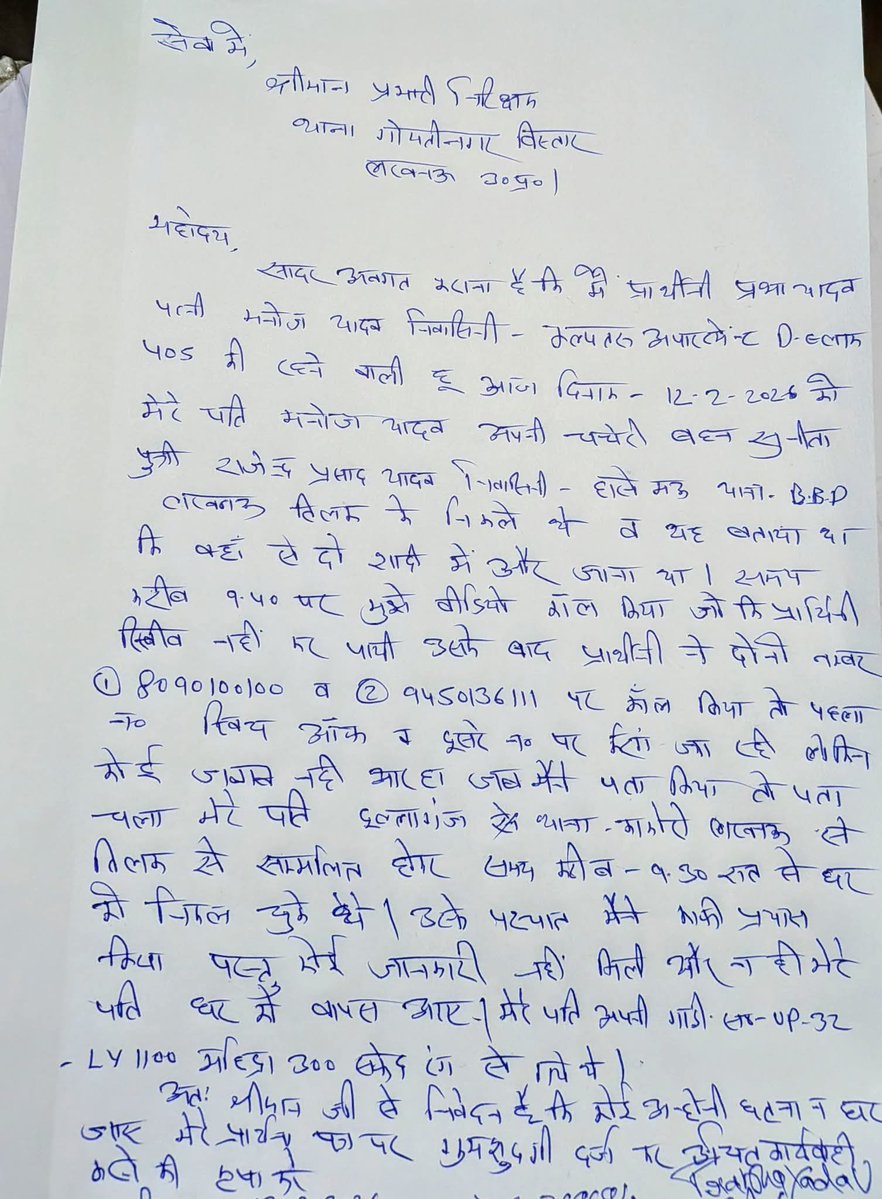 सेवा में,
श्रीमान प्रभारी निरिक्षक
थाना गोमतीनगर विस्तार
लखनऊ उ०प्र०।
महोदय,
सादर अवगत कराना है कि मैं प्रार्थीनी प्रभा यादव
पत्नी मनोज यादव निवासिनी - कल्पतरु अपार्टमेन्ट D-ब्लाक
405 की रहने वाली हू आज दिनाक - 12-2-2026 को
मेरे पति मनोज यादव अपनी चचेरी बहन सुनीता
पुत्री राजेन्द्र प्रसाद यादव निवासिनी - थाना- B.B.D
लखनऊ तिलक के निकले थे व यह बताया था
कि वहाँ से दो शादी में और जाना था। समय
करीब 9.40 पर मुझे वीडियो कॉल किया जो कि प्रार्थिनी
रिसीव नहीं कर पायी उसके बाद प्रार्थीनी ने दोनो नम्बर
① 8090100100 व ② 9450136111 पर कॉल किया तो पहला
न० स्विच ऑफ व दूसरे न० पर रिंग जा रही लेकिन
कोई जवाब नही आ रहा जब मैंने पता किया तो पता
चला मेरे पति थाना - काकोरी लखनऊ से
तिलक से सम्मलित होकर समय करीब - 9.30 रात से घर
को निकल चुके थे। उसके पश्चात मैंने काफी प्रयास
किया परन्तु कोई जानकारी नहीं मिली और न ही मेरे
पति घर में वापस आए। मेरे पति अपनी गाडी- UP-32
- LY 1100 महिंद्रा 300 सफेद रंग से गये थे।
अतः श्रीमान जी से निवेदन है कि कोई अनहोनी घटना न घट
जाए मेरे प्रार्थना पर गुमशुदगी दर्ज कर उचित कार्यवाही
करने की कृपा करे
Yadav